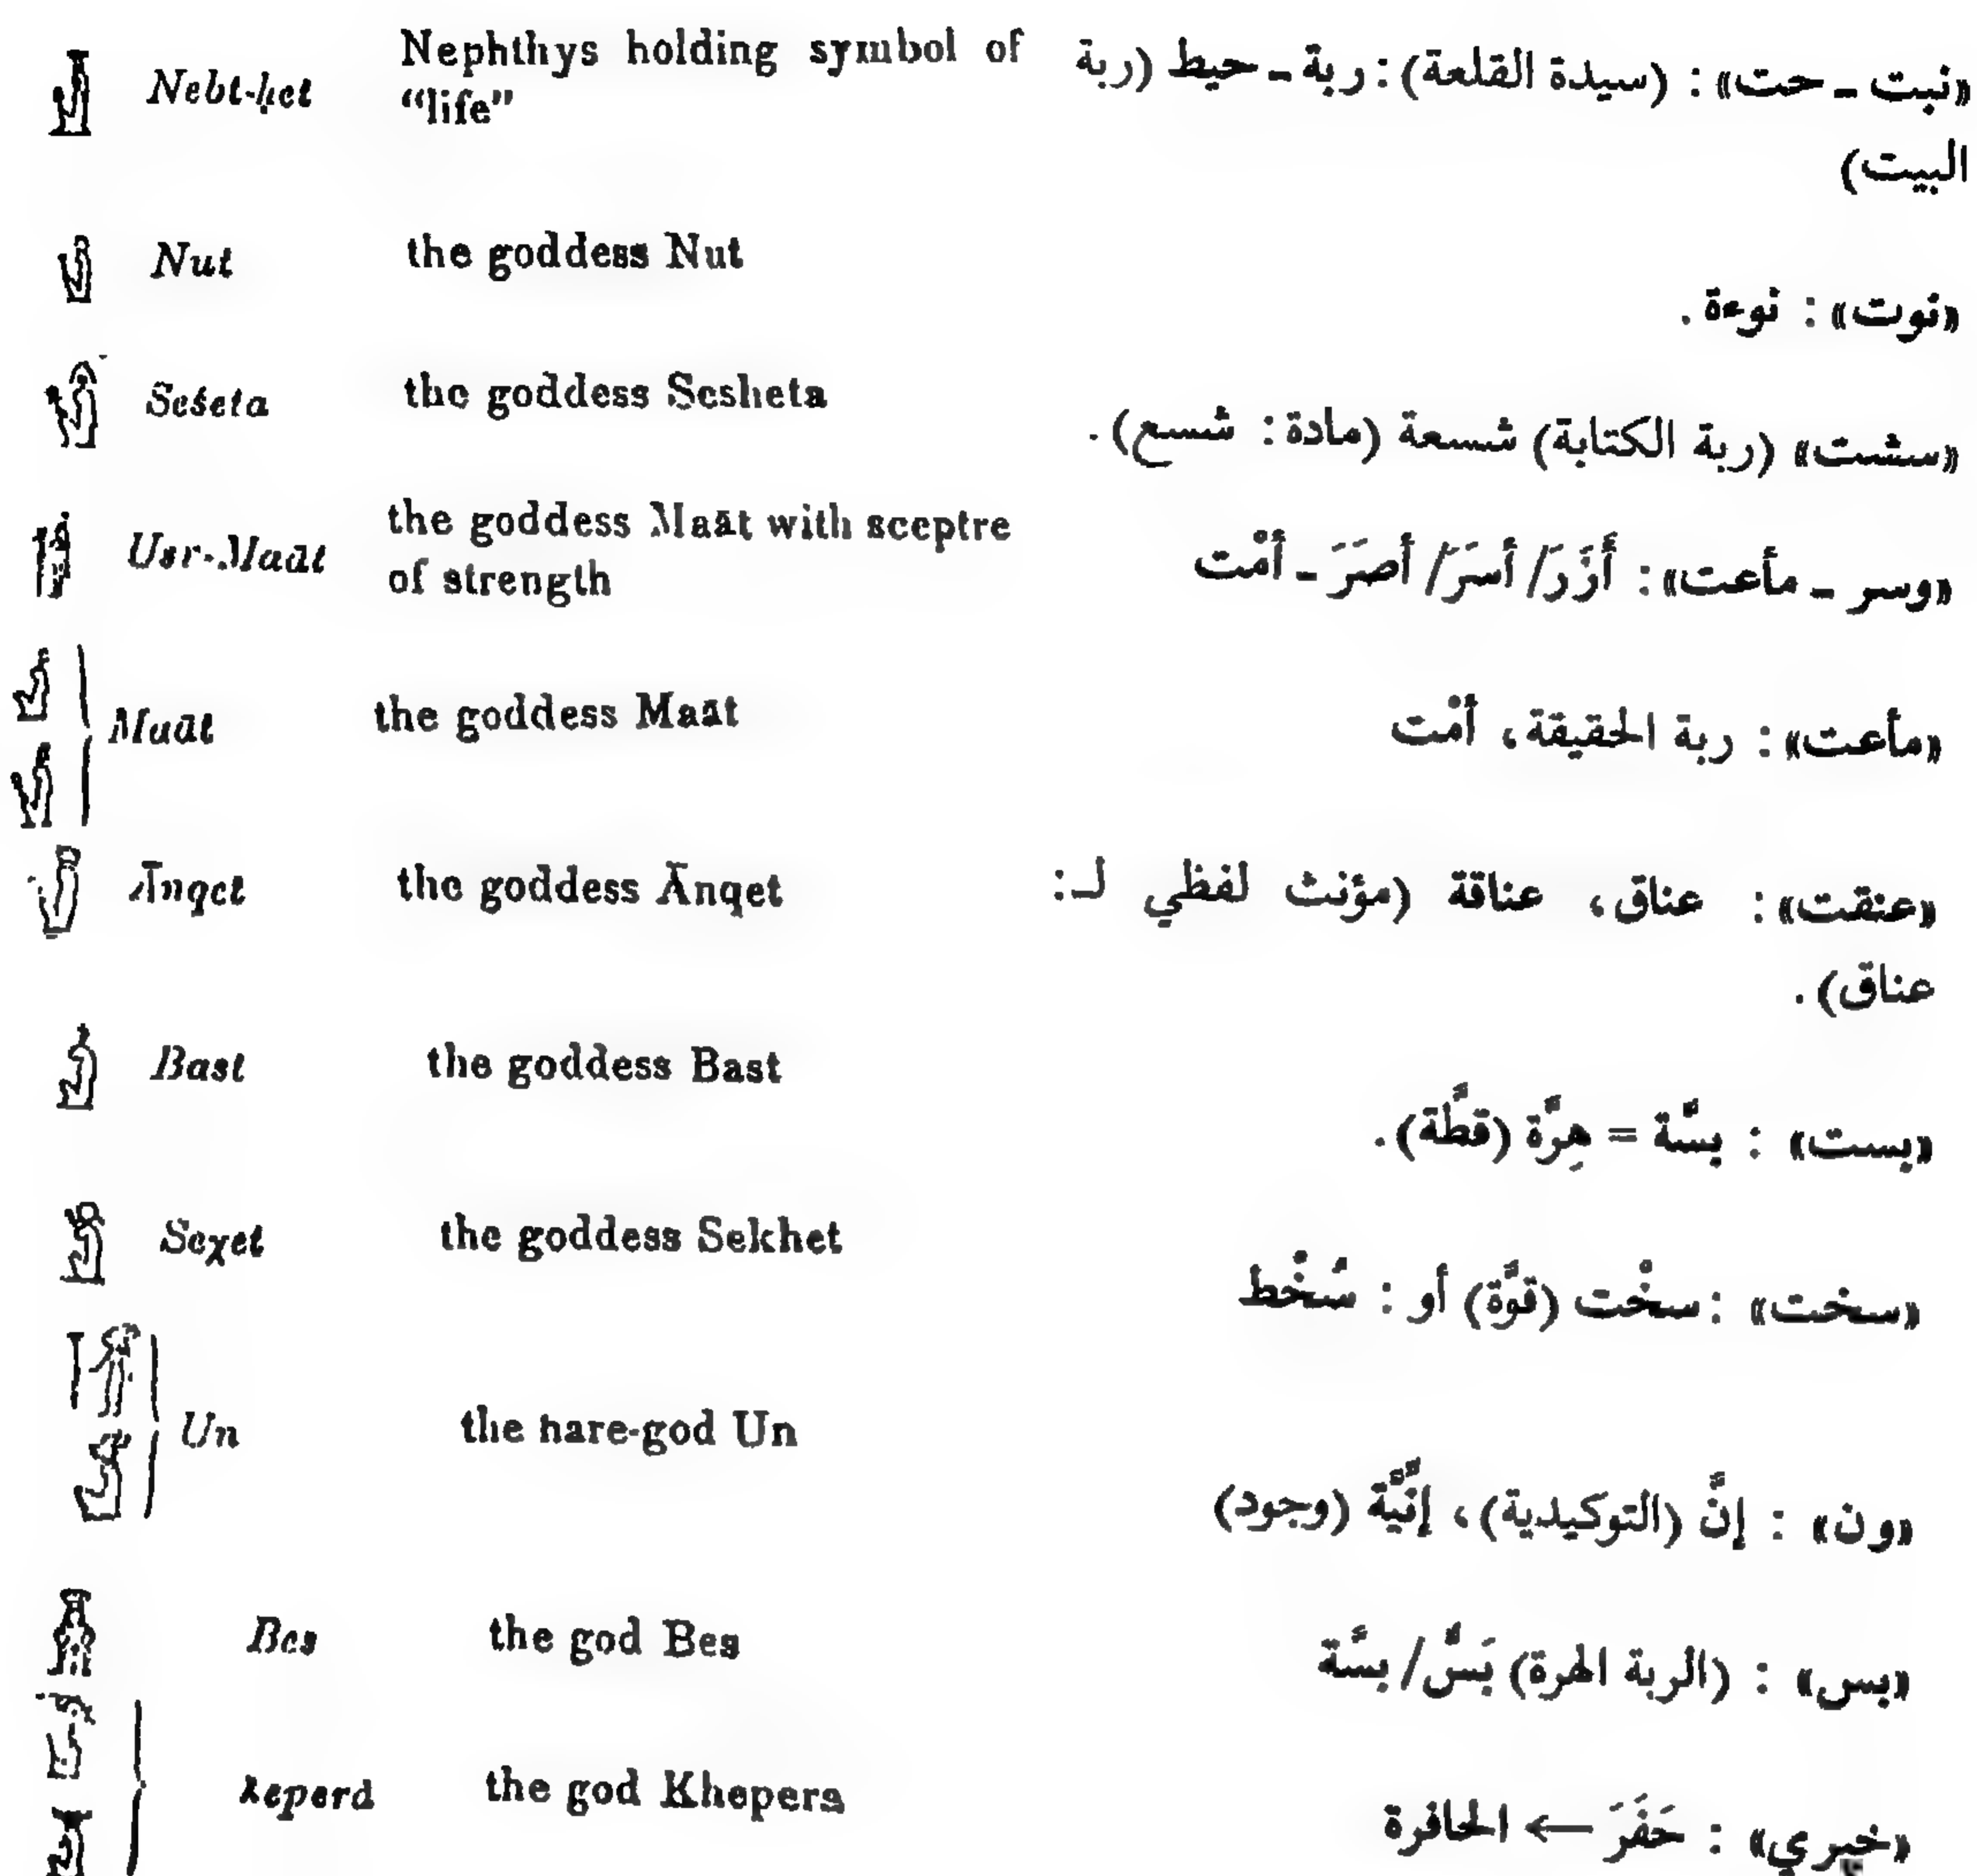 Nebt-ḥet Nephthys holding symbol of «نبت - حت» : (سيدة القلعة) : ربة - حيط (ربة
“life”
البيت)
Nut the goddess Nut
«نوت» : نوءة .
Seśeta the goddess Sesheta
«سشت» (ربة الكتابة) شسعة (مادة : شسع) .
Usr-Maāt the goddess Maāt with sceptre
of strength
«وسر - مأعت» : أَزَرَ/ أسَرَ/ أصَرَ - أمْت
Maāt the goddess Maāt
«مأعت» : ربة الحقيقة، أمْت
Ānqet the goddess Ānqet «عنقت» : عناق، عناقة (مؤنث لفظي لـ :
عناق) .
Bast the goddess Bast
«بست» : بسَّة = هِرَّة (قطَّة) .
Seχet the goddess Sekhet
«سخت» : سخْت (قوَّة) أو : سُخْط
Un the hare-god Un
«ون» : إنَّ (التوكيدية)، إنِّيَّة (وجود)
Bes the god Bes
«بس» : (الربة الهرة) بَسٌّ/ بسَّة
the god Khepera
«خبري» : حَفَرَ ← الحافرة